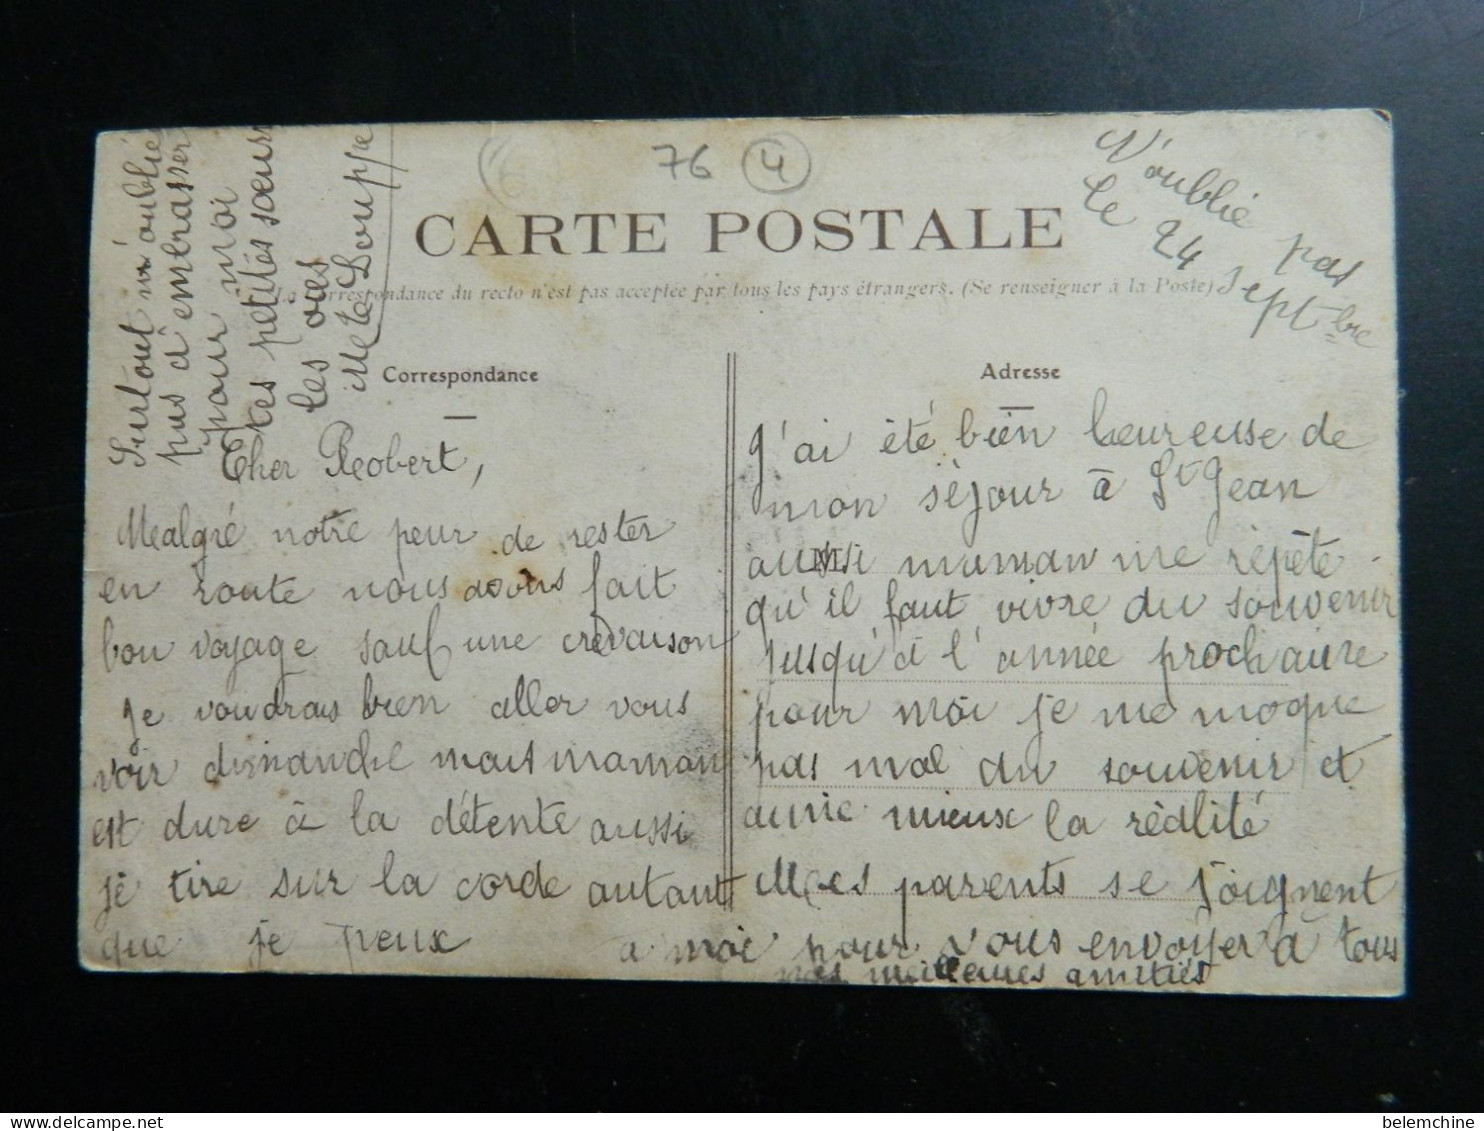 76 4
CARTE POSTALE
La Correspondance du recto n'est pas acceptée par tous les pays étrangers. (Se renseigner à la Poste)
N'oublie pas
le 24 Septbre
Correspondance
Cher Robert,
Malgré notre peur de rester
en route nous avons fait
bon voyage sauf une crevaison
Je voudrais bien aller vous
voir dimanche mais maman
est dure à la détente aussi
je tire sur la corde autant
que je peux
Adresse
J'ai été bien heureuse de
mon séjour à St Jean
aussi maman me répète
qu'il faut vivre du souvenir
jusqu'à l'année prochaine
pour moi je me moque
pas mal du souvenir et
aime mieux la réalité
Mes parents se joignent
a moi pour vous envoyer à tous
nos meilleures amitiés
Surtout n'oublie
pas d'embrasser
pour moi
tes petites sœurs
les